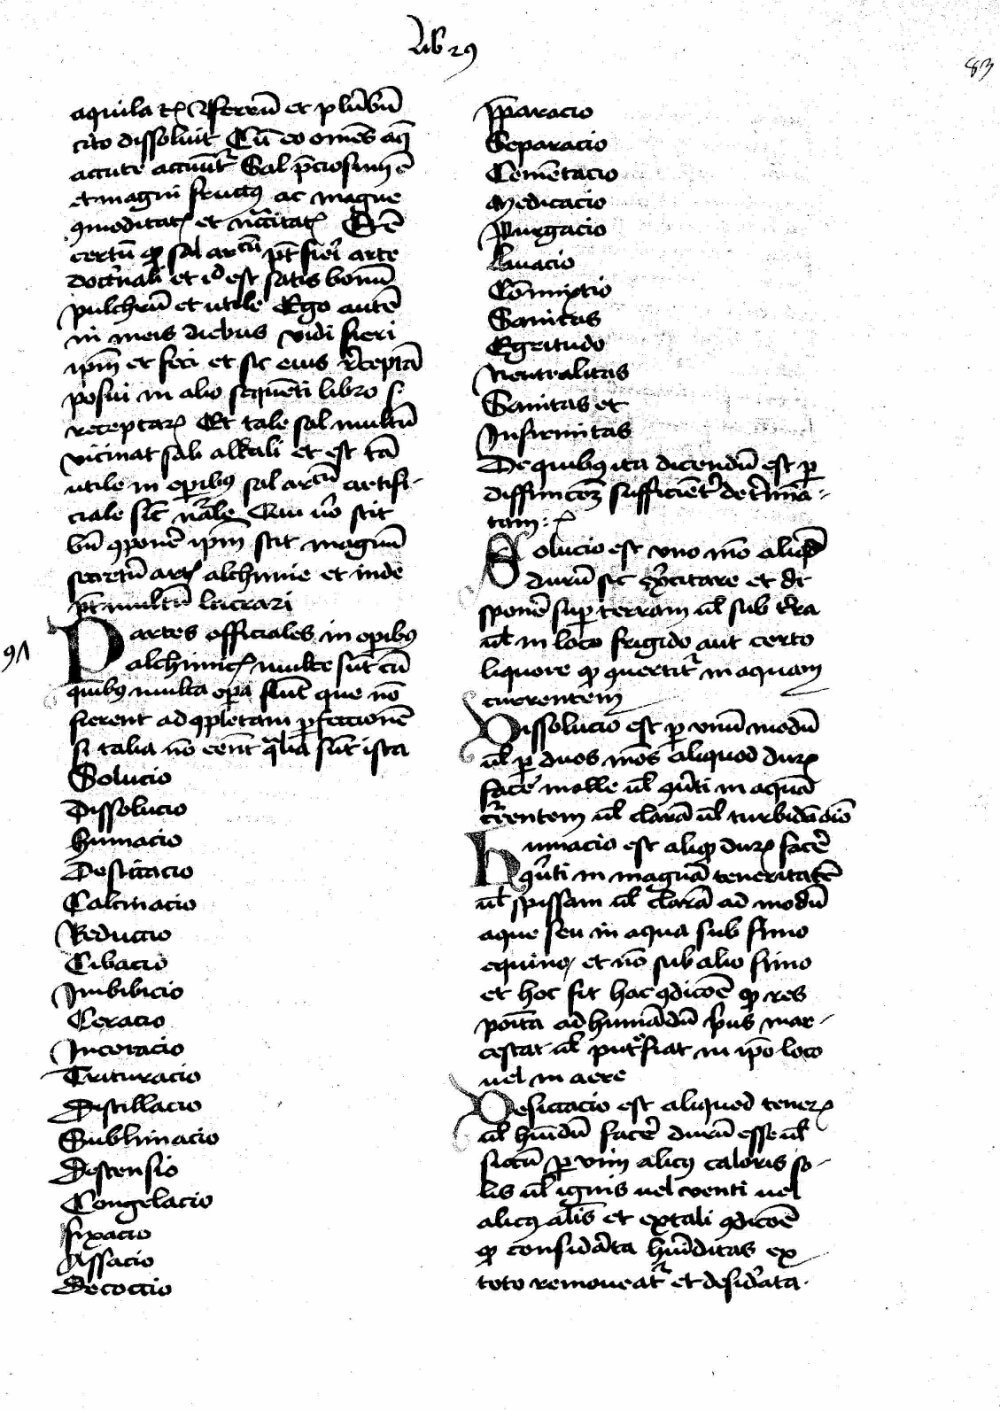 Lib 29
83
aquila ꝛc̄ Et ferrū et plūbū
cito dissoluit Cū eo omēs aq̄
accute accuūt᷑ Sal p̄ciosum̄ ē
et magni fructus ac magne
ꝯmoditatꝭ et nēcitatꝭ Et ē
certū qꝫ sal artū pt̄ fieri arte
doctrinali et id est satis bonū
pulchrū et utile Ego autē
in meis diebus vidi fieri
ipm̄ et feci et sic eius receptā
posui in alio sequēti libro s.
receptarꝝ Et tale sal multū
vicinat sali alkali et est tā
utile in oꝑibus sal artū artifi-
ciale sic̄ nāle Qui vo scit
bn̄ ꝯponē ipm̄ scit magnū
secretū artꝭ alchimie et inde
pt̄ multū lucrari
91
Partes officiales in oꝑibus
alchimicꝭ multe sūt cū
quibus multa oꝑa fiūt que nō
fierent ad ꝯpletam ꝑfectionē
si talia nō eēnt q̄lia sūt ista
Solucio
Dissolucio
Humacio
Desiccacio
Calcinacio
Reduccio
Cibacio
Imbibicio
Ceracio
Inceracio
Trituracio
Distillacio
Sublimacio
Descensio
Congelacio
Fixacio
Assacio
Decoccio
P̄paracio
Separacio
Cemētacio
Medicacio
Purgacio
Lauacio
Cōmixtio
Sanitas
Egritudo
Neutralitas
Sanitas et
Infirmitas
De quibus ita dicendū est ꝑ
diffinicoēꝫ sufficiēt᷑ det̄mīa-
tam:
Solucio est uno mō aliqd
durū sic exc̄itare et di
sponē suꝑ terram ul̄ sub t̄ra
ul̄ in loco frigido aut certo
liquore qꝫ ꝯuertit᷑ in aquam
currentem
Dissolucio est ꝑ unū modū
ul̄ ꝑ duos mōs aliquod durꝝ
facē molle ul̄ ꝯūti in aquā
cr̄rentem ul̄ clarā ul̄ turbidā oīo
Humacio est aliqꝫ durꝝ facē
ꝯūti in magnā teneritatē
ul̄ spissam ul̄ clarā ad modū
aque seu in aqua sub fimo
equino et nō sub alio fimo
et hoc fit hac ꝯdicoē qꝫ res
poīta ad humādū prius mar-
cescat ul̄ putrefiat in ipō loco
uel in aere
Desiccacio est aliquod tenerꝝ
ul̄ humidū facē durū esse ul̄
siccū ꝑ uim alicꝰ caloris so-
lis ul̄ ignis uel venti uel
alicꝰ alīs et ex tali ꝯdicoē
qꝫ considāta hūiditas ex
toto remoueat᷑ et desidāta.